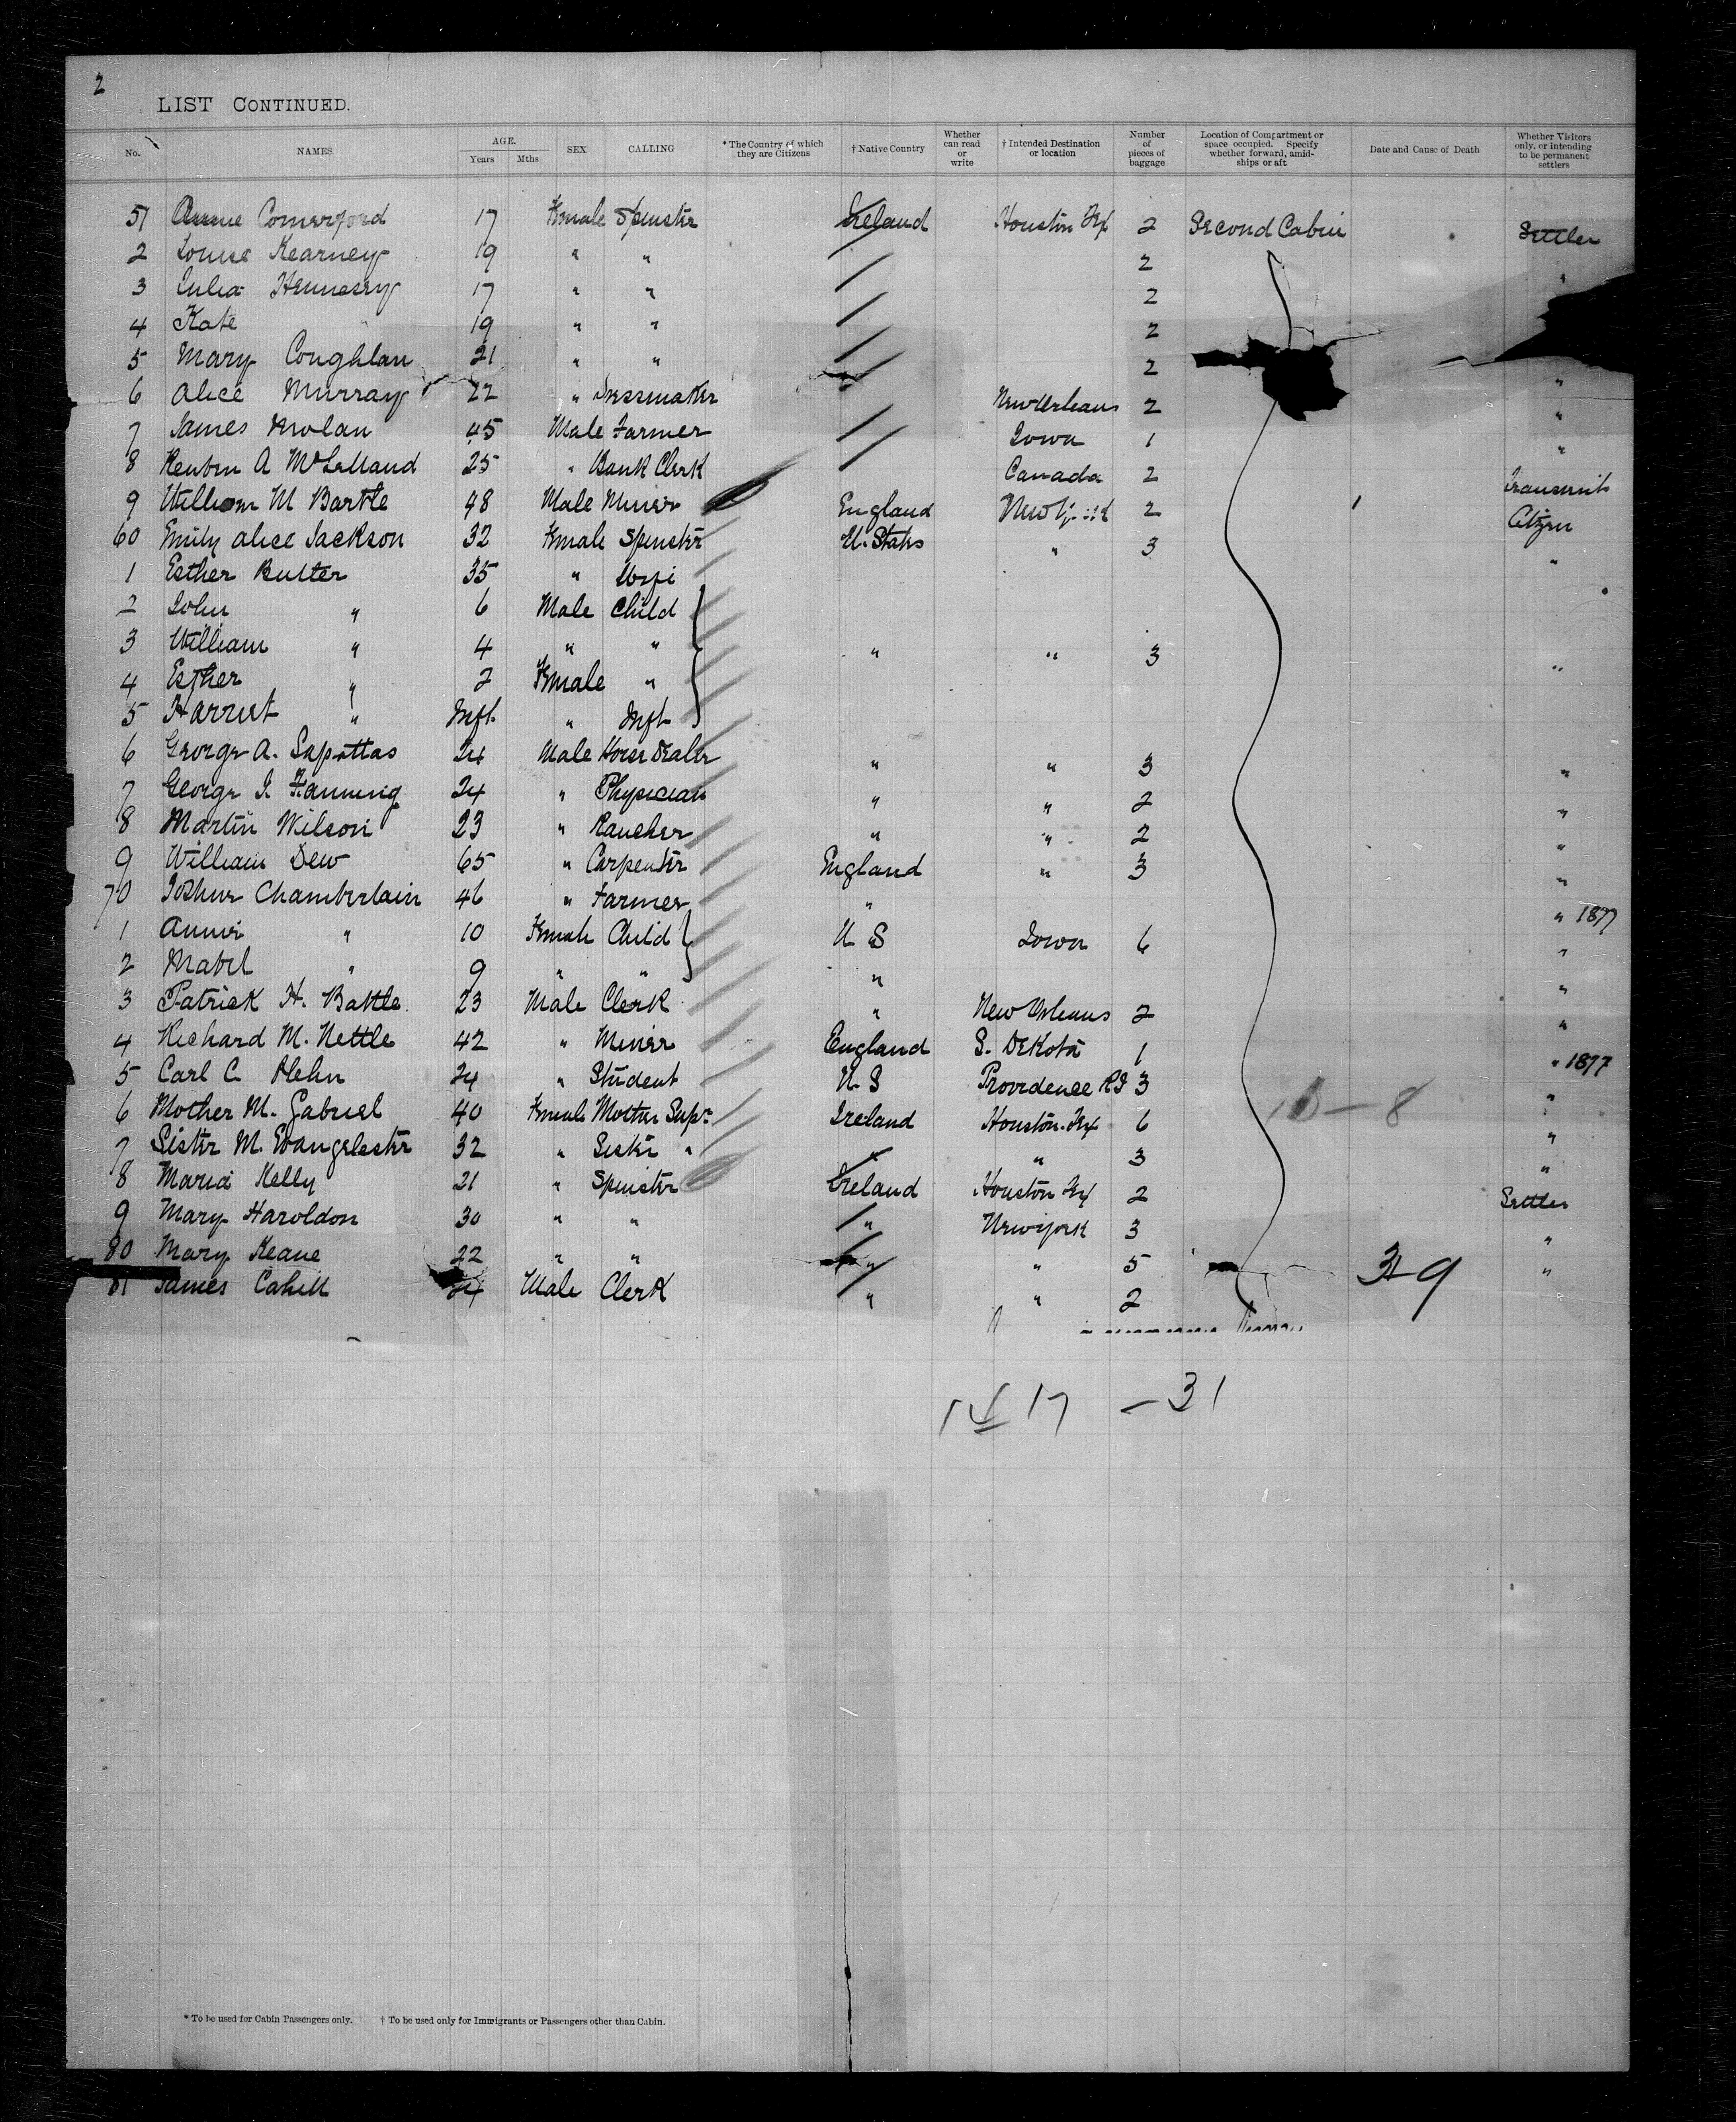 2
LIST CONTINUED.
No. NAMES AGE. Years Mths SEX CALLING * The Country of which they are Citizens † Native Country Whether can read or write † Intended Destination or location Number of pieces of baggage Location of Compartment or space occupied. Specify whether forward, amidships or aft Date and Cause of Death Whether Visitors only, or intending to be permanent settlers
51 Comerford 17 Female Spinster Ireland Houston Tex 2 Second Cabin Settler
2 Louise Kearney 19 " " 2 "
3 Julia Hennessy 17 " " 2
4 Kate " 19 " " 2
5 Mary Coughlan 21 " " 2 "
6 Alice Murray 22 " Dressmaker New Orleans 2 "
7 James Nolan 45 Male Farmer Iowa 1 "
8 Reuben A McLelland 25 " Bank Clerk Canada 2 Transit
9 William M Bartle 48 Male Miner England New 2 Citzen
60 Emily Alice Jackson 32 Female Spinster U. States " 3 "
1 Esther Butter 35 " Wife
2 John " 6 Male Child
3 William " 4 " " " " 3 "
4 Esther " 2 Female "
5 Harriet " Inft. " Inft
6 George A. 24 Male Horse Dealer " " 3 "
7 George J. Fanning 24 " Physician " " 2 "
8 Martin Wilson 23 " Rancher " " 2 "
9 William Dew 65 " Carpenter England " 3 "
70 Joshua Chamberlain 46 " Farmer " " 1877
1 Annie " 10 Female Child U S Iowa 6 "
2 Mabel " 9 " " " "
3 Patrick H. Battle 23 Male Clerk " New Orleans 2 "
4 Richard M. Nettle 42 " Miner England S. Dekota 1 " 1877
5 Carl C. 24 " Student U. S Providence RI 3 "
6 Mother M. Gabriel 40 Female Mother Supr Ireland Houston. Tex 6 "
10 — 8
7 Sister M. Evangelester 32 " Sister " " 3 "
8 Maria Kelly 21 " Spinster Ireland Houston Tex 2 Settler
9 Mary Haroldon 30 " " " New York 3 "
80 Mary Keane 22 " " " " 5 "
81 James Cahill 24 Male Clerk " " 2
17 — 31
* To be used for Cabin Passengers only. † To be used only for Immigrants or Passengers other than Cabin.